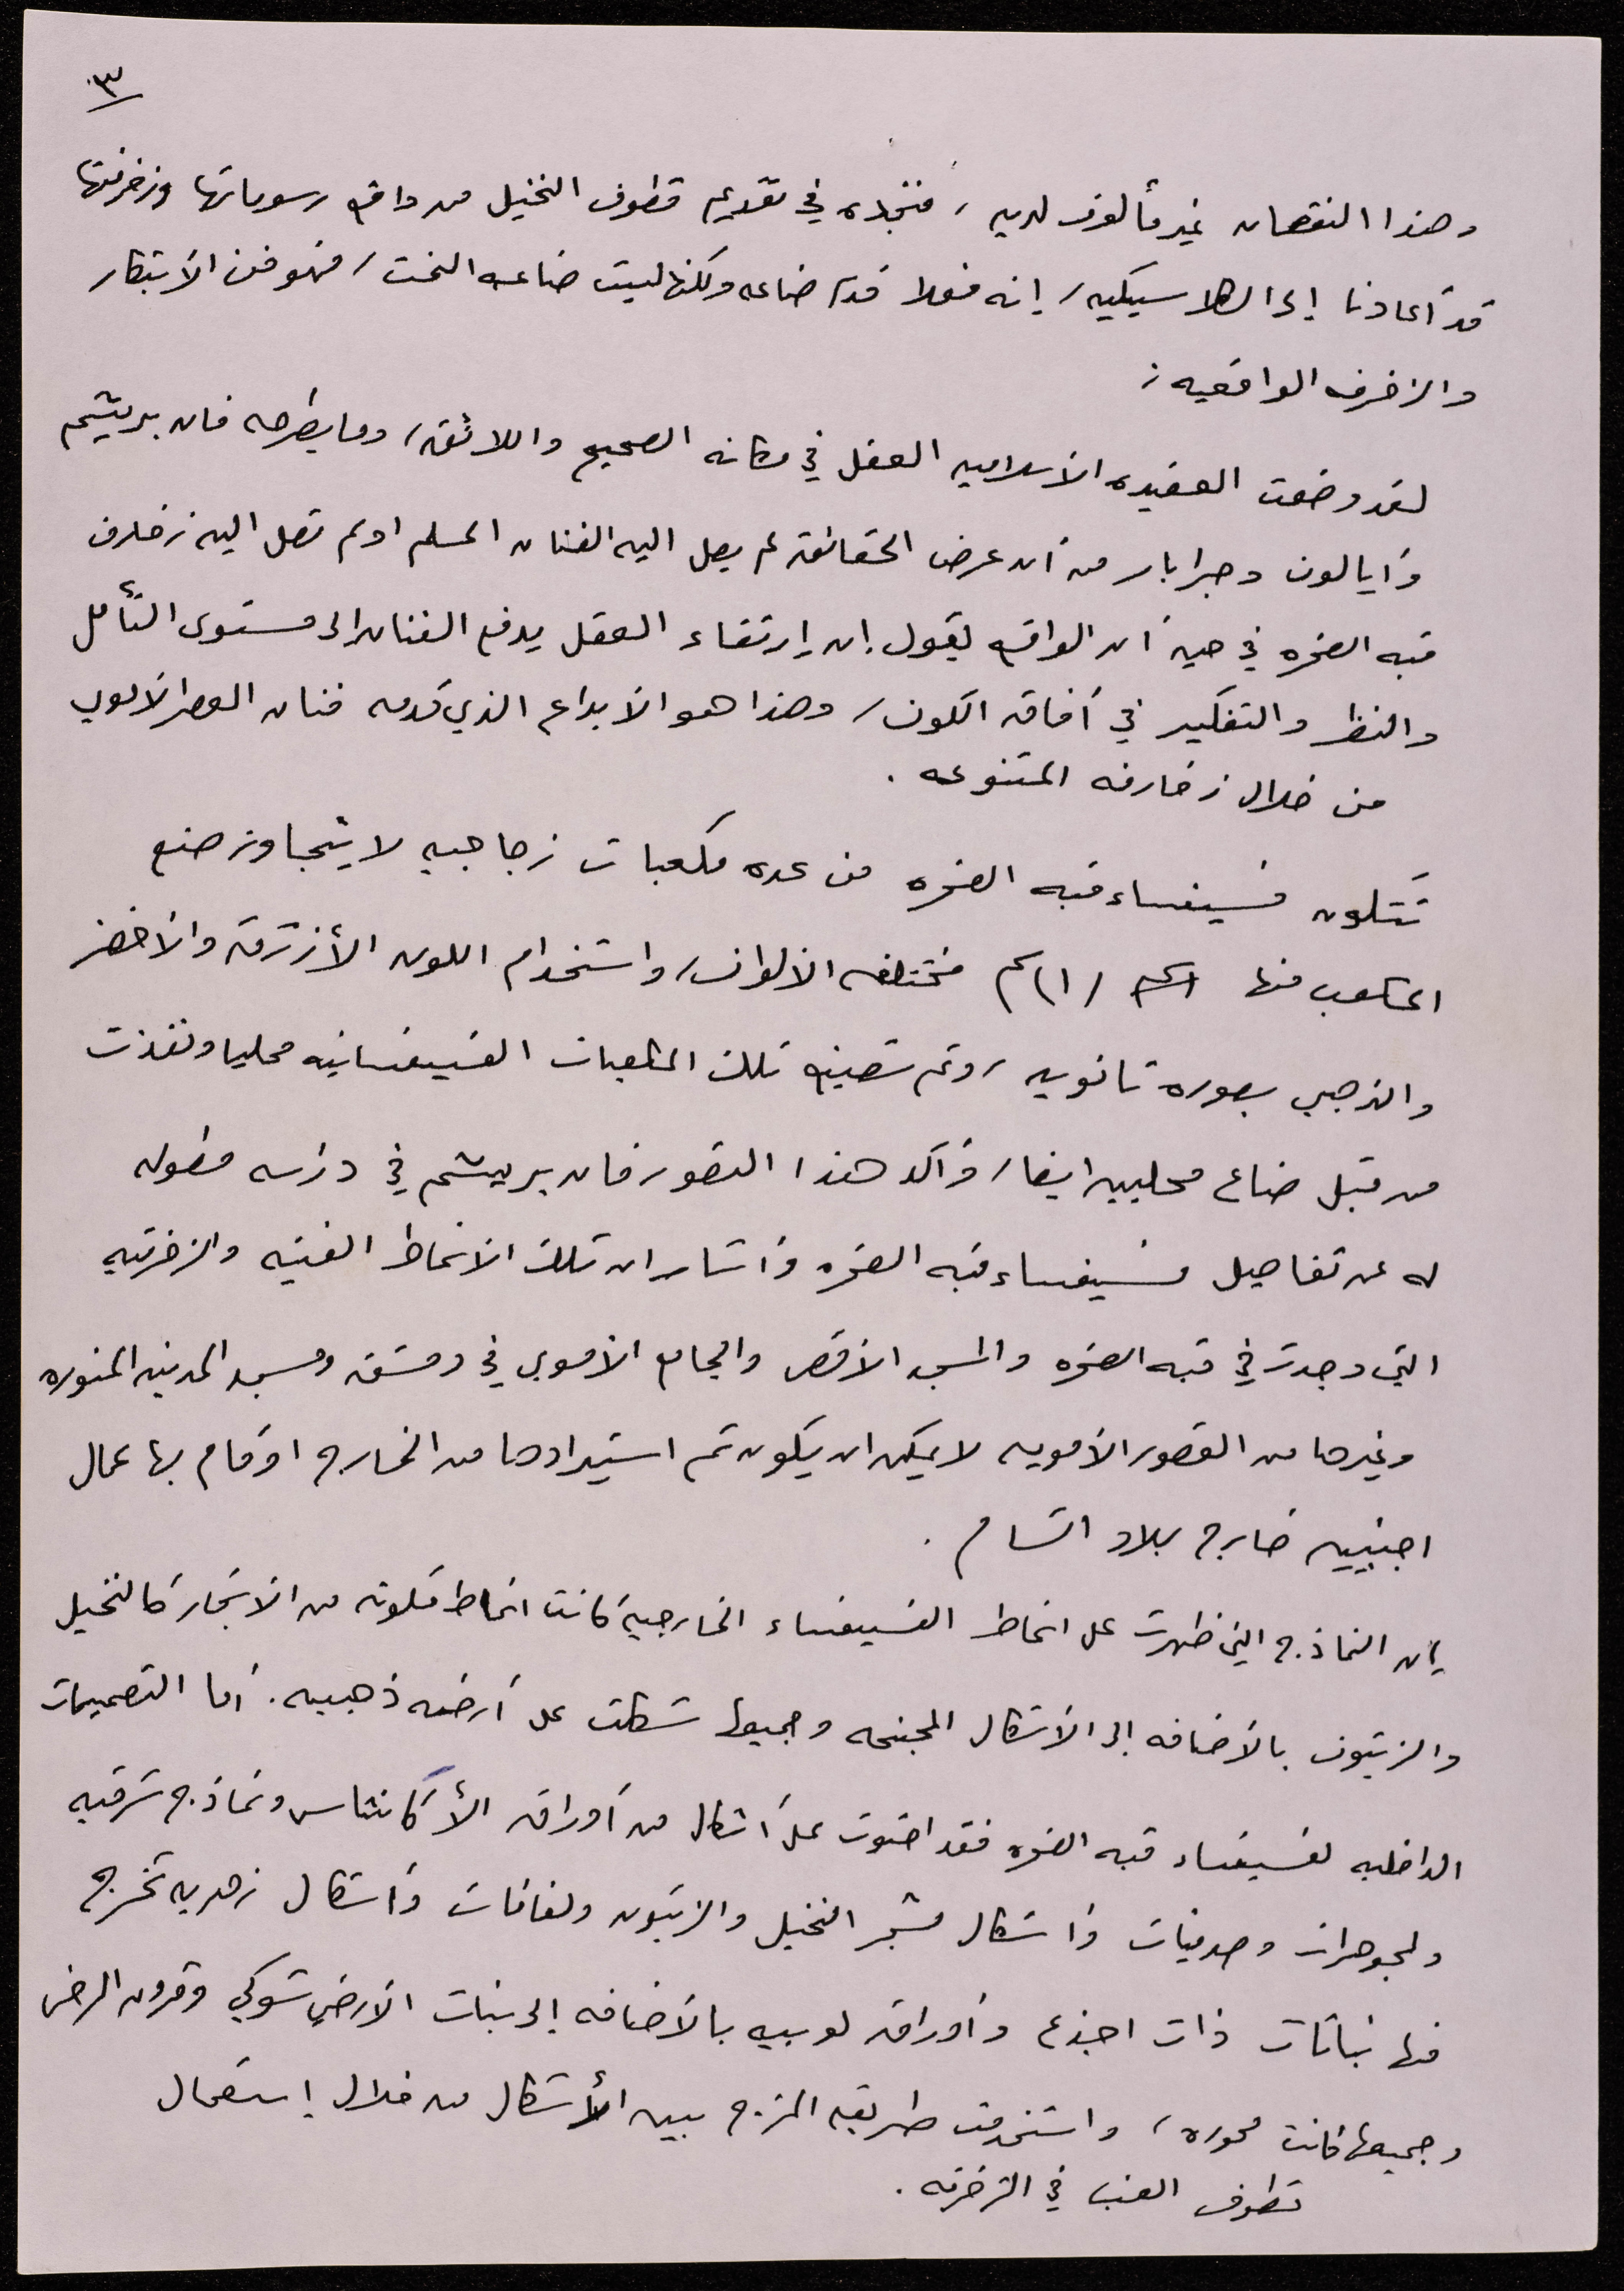 ٣.
وهذا النقصان غير مألوف لديه، فنجده في تقديم قطوف النخيل من واقع رسوماتها وزخرفتها
قد أعادنا إلى الكلاسيكيه، إنه فعلا فن صناعه ولكنها ليست صناعه النحت، فهو فن الابتكار
والزخرف الواقعيه.
لقد وضعت العقيده الأسلاميه العقل في مكانه الصحيح واللائق، وما يطرحه فان بريشم
وأيالون وجرابار من أن عرض الحقائق لم يصل اليه الفنان المسلم او لم تصل اليه زخارف
قبه الصخره في حين أن الواقع يقول إن إرتقاء العقل يدفع الفنان الى مستوى التأمل
والنظر والتفكير في آفاق الكون، وهذا هو الأبداع الذي قدمه فنان العصر الأموي
من خلال زخارفه المتنوعه.
تتكون فسيفساء قبه الصخره من عده مكعبات زجاجيه لا يتجاوز ضلع
المكعب منها (١) سم مختلفه الألوان، واستخدام اللون الأزرق والأخضر
والذهبي بصوره ثانويه، وتم تصنيع تلك المكعبات الفسيفسائيه محليا ونفذت
من قبل صناع محليين ايضا، وأكد هذا التصور فان بريشم في دراسه مطوله
له عن تفاصيل فسيفساء قبه الصخره وأشار ان تلك الأنماط الفنيه والزخرفيه
التي وجدت في قبه الصخره والمسجد الأقصى والجامع الأموي في دمشق ومسجد المدينه المنوره
وغيرها من القصور الأمويه لا يمكن ان يكون تم استيرادها من الخارج او قام بها عمال
اجنبيين خارج بلاد الشام.
إن النماذج التي ظهرت على انماط الفسيفساء الخارجيه كانت انماط مكونه من الأشجار كالنخيل
والزيتون بالأضافه إلى الأشكال المجنحه وجميعها شكلت على أرضيه ذهبيه. أما التصميمات
الداخليه لفسيفساء قبه الصخره فقد احتوت على أشكال من أوراق الأكانثاس ونماذج شرقيه
ولمجوهرات وصدفيات وأشكال لشجر النخيل والزيتون ولفافات وأشكال زهريه تخرج
منها نباتات ذات اجذع وأوراق لولبيه بالأضافه إلى نبات الأرضي شوكي وقرون الرخى
وجميعها كانت محوره، واستخدمت طريقه المزج بين الأشكال من خلال إستعمال
قطوف العنب في الزخرفه.